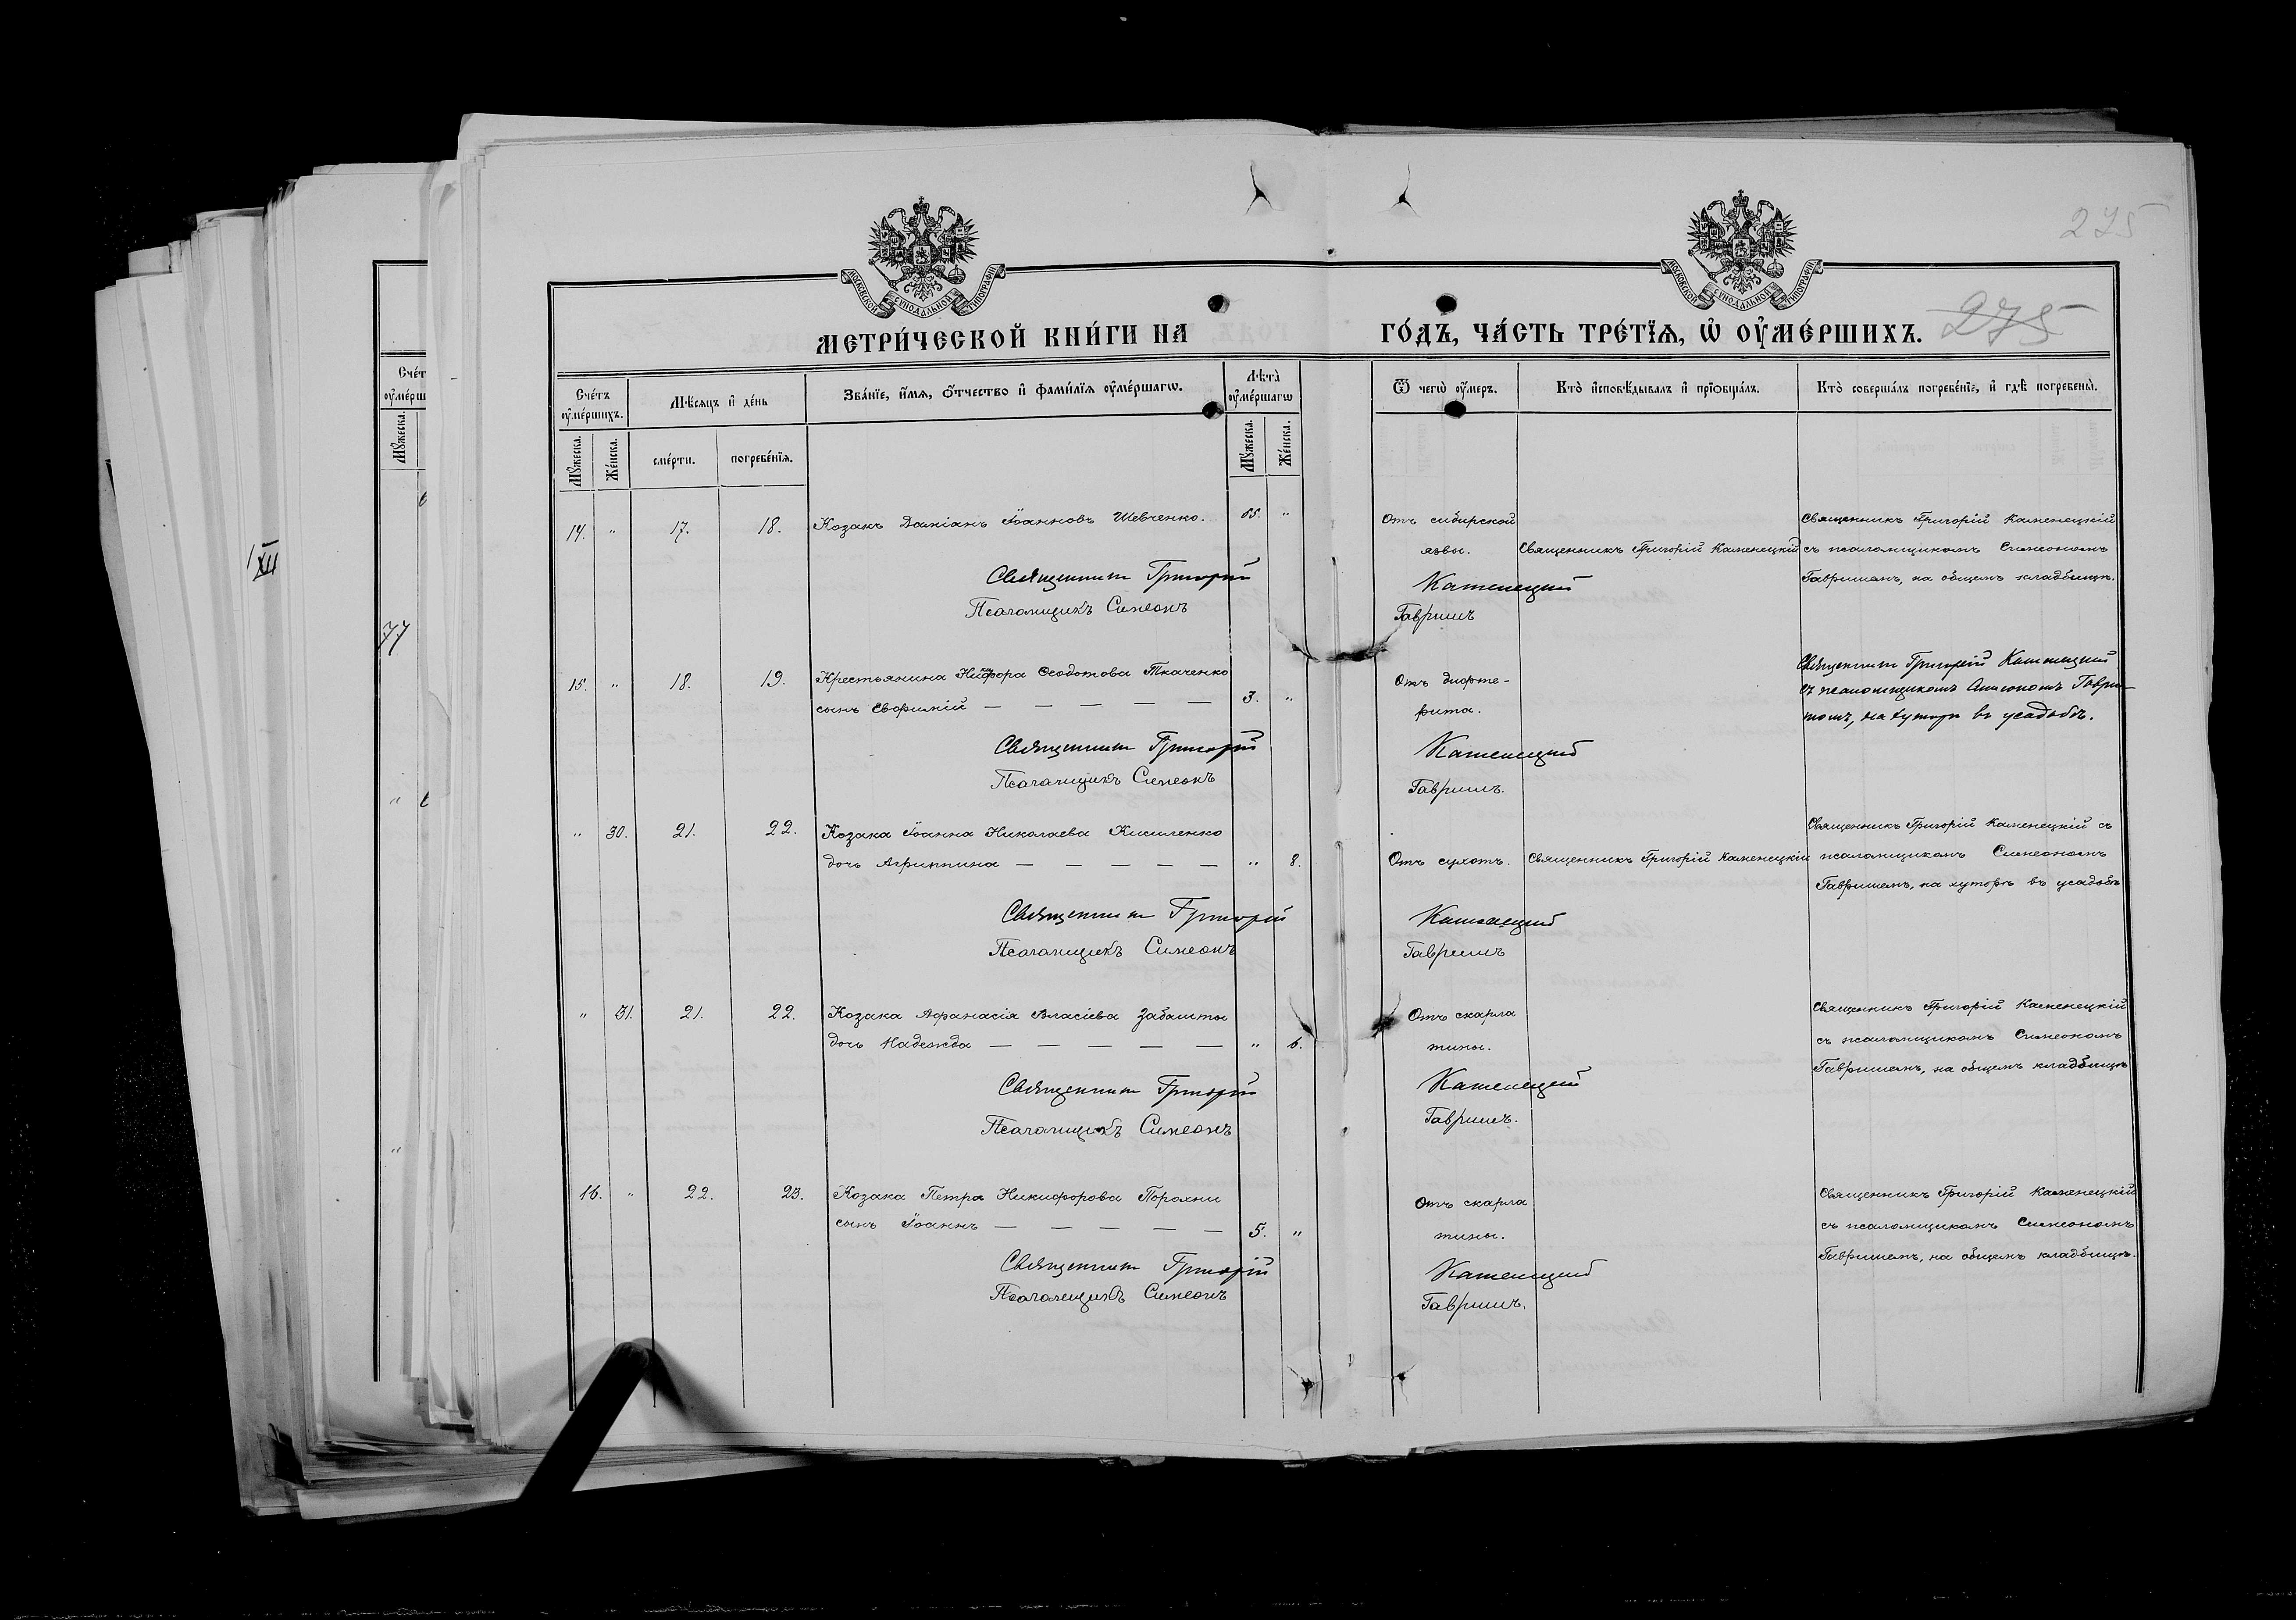 275
МОСКОВСКОЙ СѴНОДАЛЬНОЙ ТИПОГРАФІИ
МОСКОВСКОЙ СѴНОДАЛЬНОЙ ТИПОГРАФІИ
МЕТРИ́ЧЕСКОЙ КНИ́ГИ НА ГО́ДЪ, ЧА́СТЬ ТРЕ́ТЇѦ, Ѽ ОУ҆МЕ́РШИХЪ.
275
Сче́тъ оу҆ме́ршихъ.
Мѣ́сѧцъ и҆ де́нь
Зва́нїе, и҆́мѧ, ѻ҆́тчество и҆ фами́лїѧ оу҆ме́ршагѡ.
Лѣ́та оу҆ме́ршагѡ
Ѿ чегѡ̀ оу҆́меръ.
Кто̀ и҆сповѣ́дывалъ и҆ прїѡбща́лъ.
Кто̀ соверша́лъ погребе́нїе, и҆ гдѣ̀ погребены̀.
Мꙋ́жеска.
Же́нска.
сме́рти.
погребе́нїѧ.
Мꙋ́жеска.
Же́нска.
14. " 17. 18. Козакъ Даміанъ Іоанновъ Шевченко. "
Отъ сибирской
язвы.
Священникъ Григорій Каменецкій
Священникъ Григорій Каменецкій
съ псаломщикомъ Симеономъ
Гавришемъ, на общемъ кладбищѣ.
Священникъ Григорій Каменецкій
Псаломщикъ Симеонъ Гавришъ
15. " 18. 19. Крестьянина Никифора Ѳеодотова Ткаченко
сынъ Евфимій — — — — — 3. "
Отъ дифте-
рита.
Священникъ Григорій Каменецкий
съ псаломщикомъ Симеономъ Гаври-
шомъ, на хуторѣ въ усадьбѣ.
Священникъ Григорій Каменецкий
Псаломщикъ Симеонъ Гавришъ.
" 30. 21. 22. Козака Іоанна Николаева Кисиленко
дочь Агриппина — — — — — " 8.
Отъ сухотъ.
Священникъ Григорій Каменецкій
Священникъ Григорій Каменецкій съ
псаломщикомъ Симеономъ
Гавришемъ, на хуторѣ въ усадьбѣ
Священникъ Григорій Каменецкий
Псаломщикъ Симеонъ Гавришъ
" 31. 21. 22. Козака Афанасія Власіева Забашты
дочь Надежда — — — — — " 6.
Отъ скарла
тины.
Священникъ Григорій Каменецкій
съ псаломщикомъ Симеономъ
Гавришемъ, на общемъ кладбищѣ
Священникъ Григорій Каменецкий
Псаломщикъ Симеонъ Гавришъ.
16. " 22. 23. Козака Петра Никифорова Порохни
сынъ Іоаннъ — — — — — 5. "
Отъ скарла
тины.
Священникъ Григорій Каменецкій
съ псаломщикомъ Симеономъ
Гавришемъ, на общемъ кладбищѣ.
Священникъ Григорій Каменецкий
Псаломщикъ Симеонъ Гавришъ.